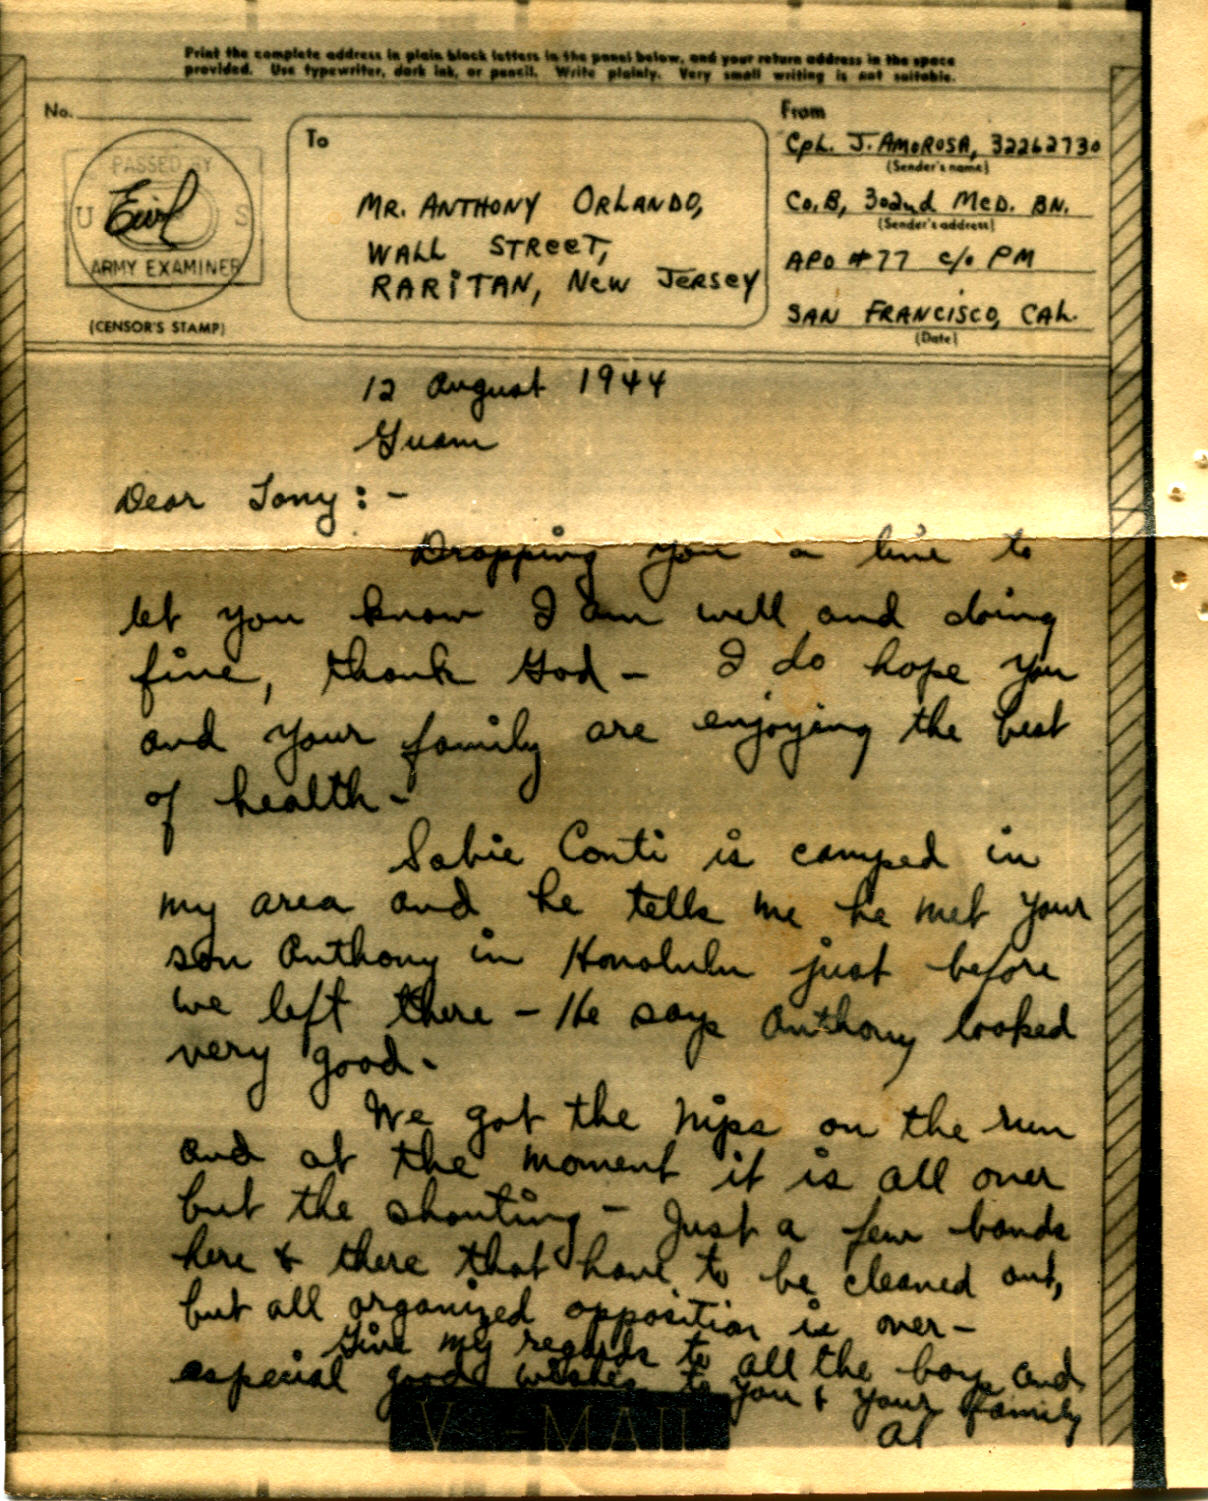 Print the complete address in plain block letters in the panel below, and your return address in the space
provided. Use typewriter, dark ink, or pencil. Write plainly. Very small writing is not suitable.
No.
From
To
Cpl. J. AMOROSA, 32262730
(Sender's name)
PASSED BY
U S
ARMY EXAMINER
(CENSOR'S STAMP)
MR. ANTHONY ORLANDO,
WALL STREET,
RARITAN, NEW JERSEY
Co. B, 302nd MED. BN.
(Sender's address)
APO #77 c/o PM
SAN FRANCISCO, CAL.
(Date)
12 August 1944
Guam
Dear Tony: -
Dropping you a line to
let you know I am well and doing
fine, thank God - I do hope you
and your family are enjoying the best
of health -
Sabie Conti is camped in
my area and he tells me he met your
son Anthony in Honolulu just before
we left there - He says Anthony looked
very good -
We got the Nips on the run
and at the moment it is all over
but the shouting - Just a few bands
here & there that have to be cleaned out,
but all organized opposition is over -
Give my regards to all the boys and
especial good wishes to you & your family
Al
V - MAIL